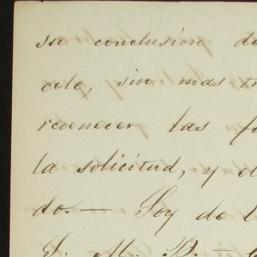 su conclusion de
cole, sin mas tr
reconocer las f
la solicitud, y el
do.— Soy de l